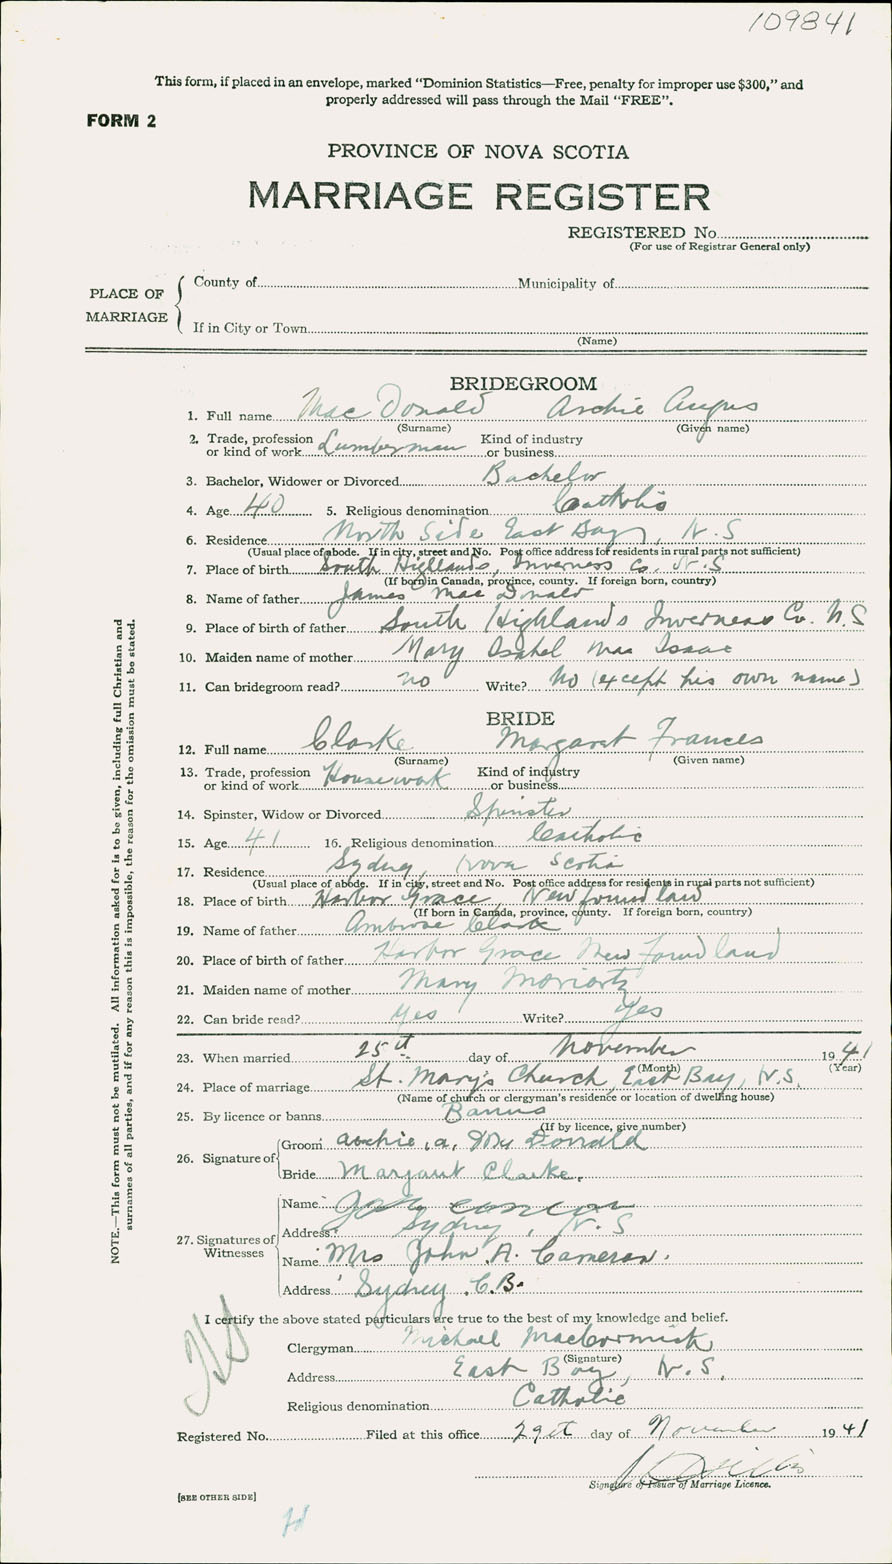 109841
This form, if placed in an envelope, marked "Dominion Statistics—Free, penalty for improper use $300," and
properly addressed will pass through the Mail "FREE".
FORM 2
PROVINCE OF NOVA SCOTIA
MARRIAGE REGISTER
REGISTERED No.
(For use of Registrar General only)
PLACE OF MARRIAGE
County of Municipality of
If in City or Town
(Name)
BRIDEGROOM
1. Full name Mac Donald Archie Angus
(Surname) (Given name)
2. Trade, profession or kind of work Lumberman Kind of industry or business
3. Bachelor, Widower or Divorced Bachelor
4. Age 40 5. Religious denomination Catholic
6. Residence North Side East Bay, N.S
(Usual place of abode. If in city, street and No. Post office address for residents in rural parts not sufficient)
7. Place of birth South Highlands, Inverness Co. N.S
(If born in Canada, province, county. If foreign born, country)
8. Name of father James Mac Donald
9. Place of birth of father South Highlands Inverness Co. N.S
10. Maiden name of mother Mary Isabel Mac Isaac
11. Can bridegroom read? no Write? No (except his own name)
BRIDE
12. Full name Clarke Margaret Frances
(Surname) (Given name)
13. Trade, profession or kind of work Housework Kind of industry or business
14. Spinster, Widow or Divorced Spinster
15. Age 41 16. Religious denomination Catholic
17. Residence Sydney, Nova Scotia
(Usual place of abode. If in city, street and No. Post office address for residents in rural parts not sufficient)
18. Place of birth Harbor Grace, Newfoundland
(If born in Canada, province, county. If foreign born, country)
19. Name of father Ambrose Clarke
20. Place of birth of father Harbor Grace Newfoundland
21. Maiden name of mother Mary Moriarty
22. Can bride read? Yes Write? Yes
23. When married 25th day of November 1941
(Month) (Year)
24. Place of marriage St. Mary's Church, East Bay, N.S.
(Name of church or clergyman's residence or location of dwelling house)
25. By licence or banns Banns
(If by licence, give number)
26. Signature of
Groom archie, a, Mc Donald
Bride Margaret Clarke.
27. Signatures of Witnesses
Name
Address Sydney, N.S
Name Mrs John A. Cameron.
Address Sydney C.B.
I certify the above stated particulars are true to the best of my knowledge and belief.
Clergyman Michael MacCormick
(Signature)
Address East Bay, N.S.
Religious denomination Catholic
Registered No. Filed at this office 29th day of November 1941
Signature of Issuer of Marriage Licence.
[SEE OTHER SIDE]
NOTE.—This form must not be mutilated. All information asked for is to be given, including full Christian and
surnames of all parties, and if for any reason this is impossible, the reason for the omission must be stated.